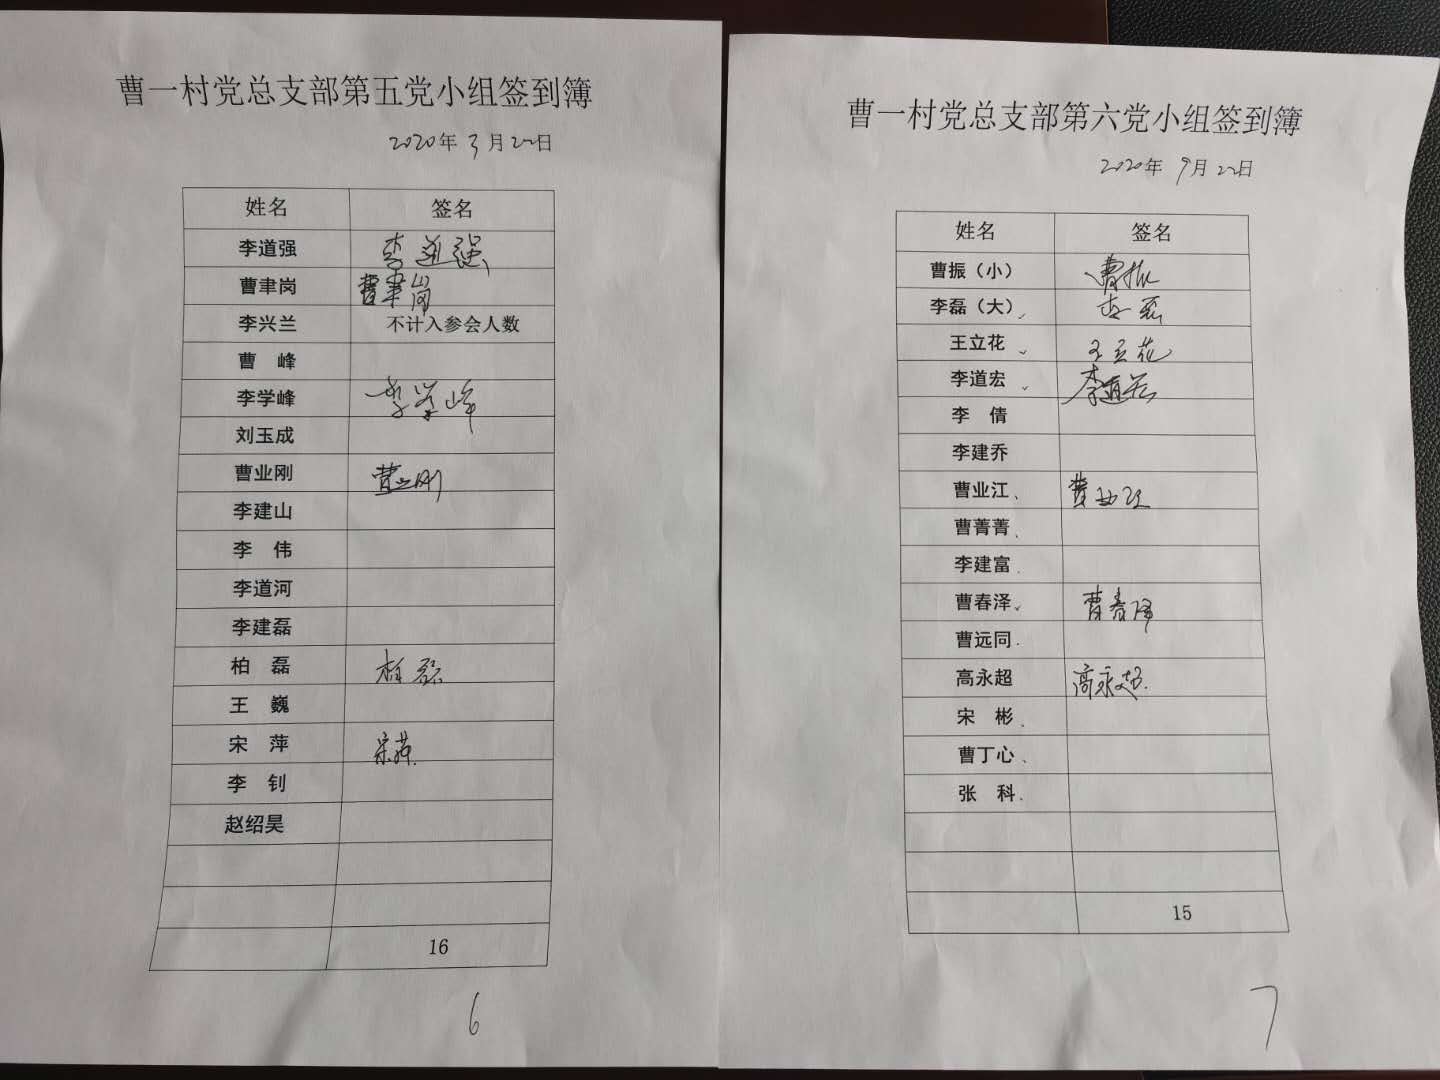 曹一村党总支部第五党小组签到簿
2020年3月22日
姓名 签名
李道强 李道强
曹聿岗 曹聿岗
李兴兰 不计入参会人数
曹 峰
李学峰 李学峰
刘玉成
曹业刚 曹业刚
李建山
李 伟
李道河
李建磊
柏 磊 柏磊
王 巍
宋 萍 宋萍
李 钊
赵绍昊
16
6
曹一村党总支部第六党小组签到簿
2020年9月22日
姓名 签名
曹振（小） 曹振
李磊（大） 李磊
王立花 王立花
李道宏 李道宏
李 倩
李建乔
曹业江 曹业江
曹菁菁
李建富
曹春泽 曹春泽
曹远同
高永超 高永超
宋 彬
曹丁心
张 科
15
7